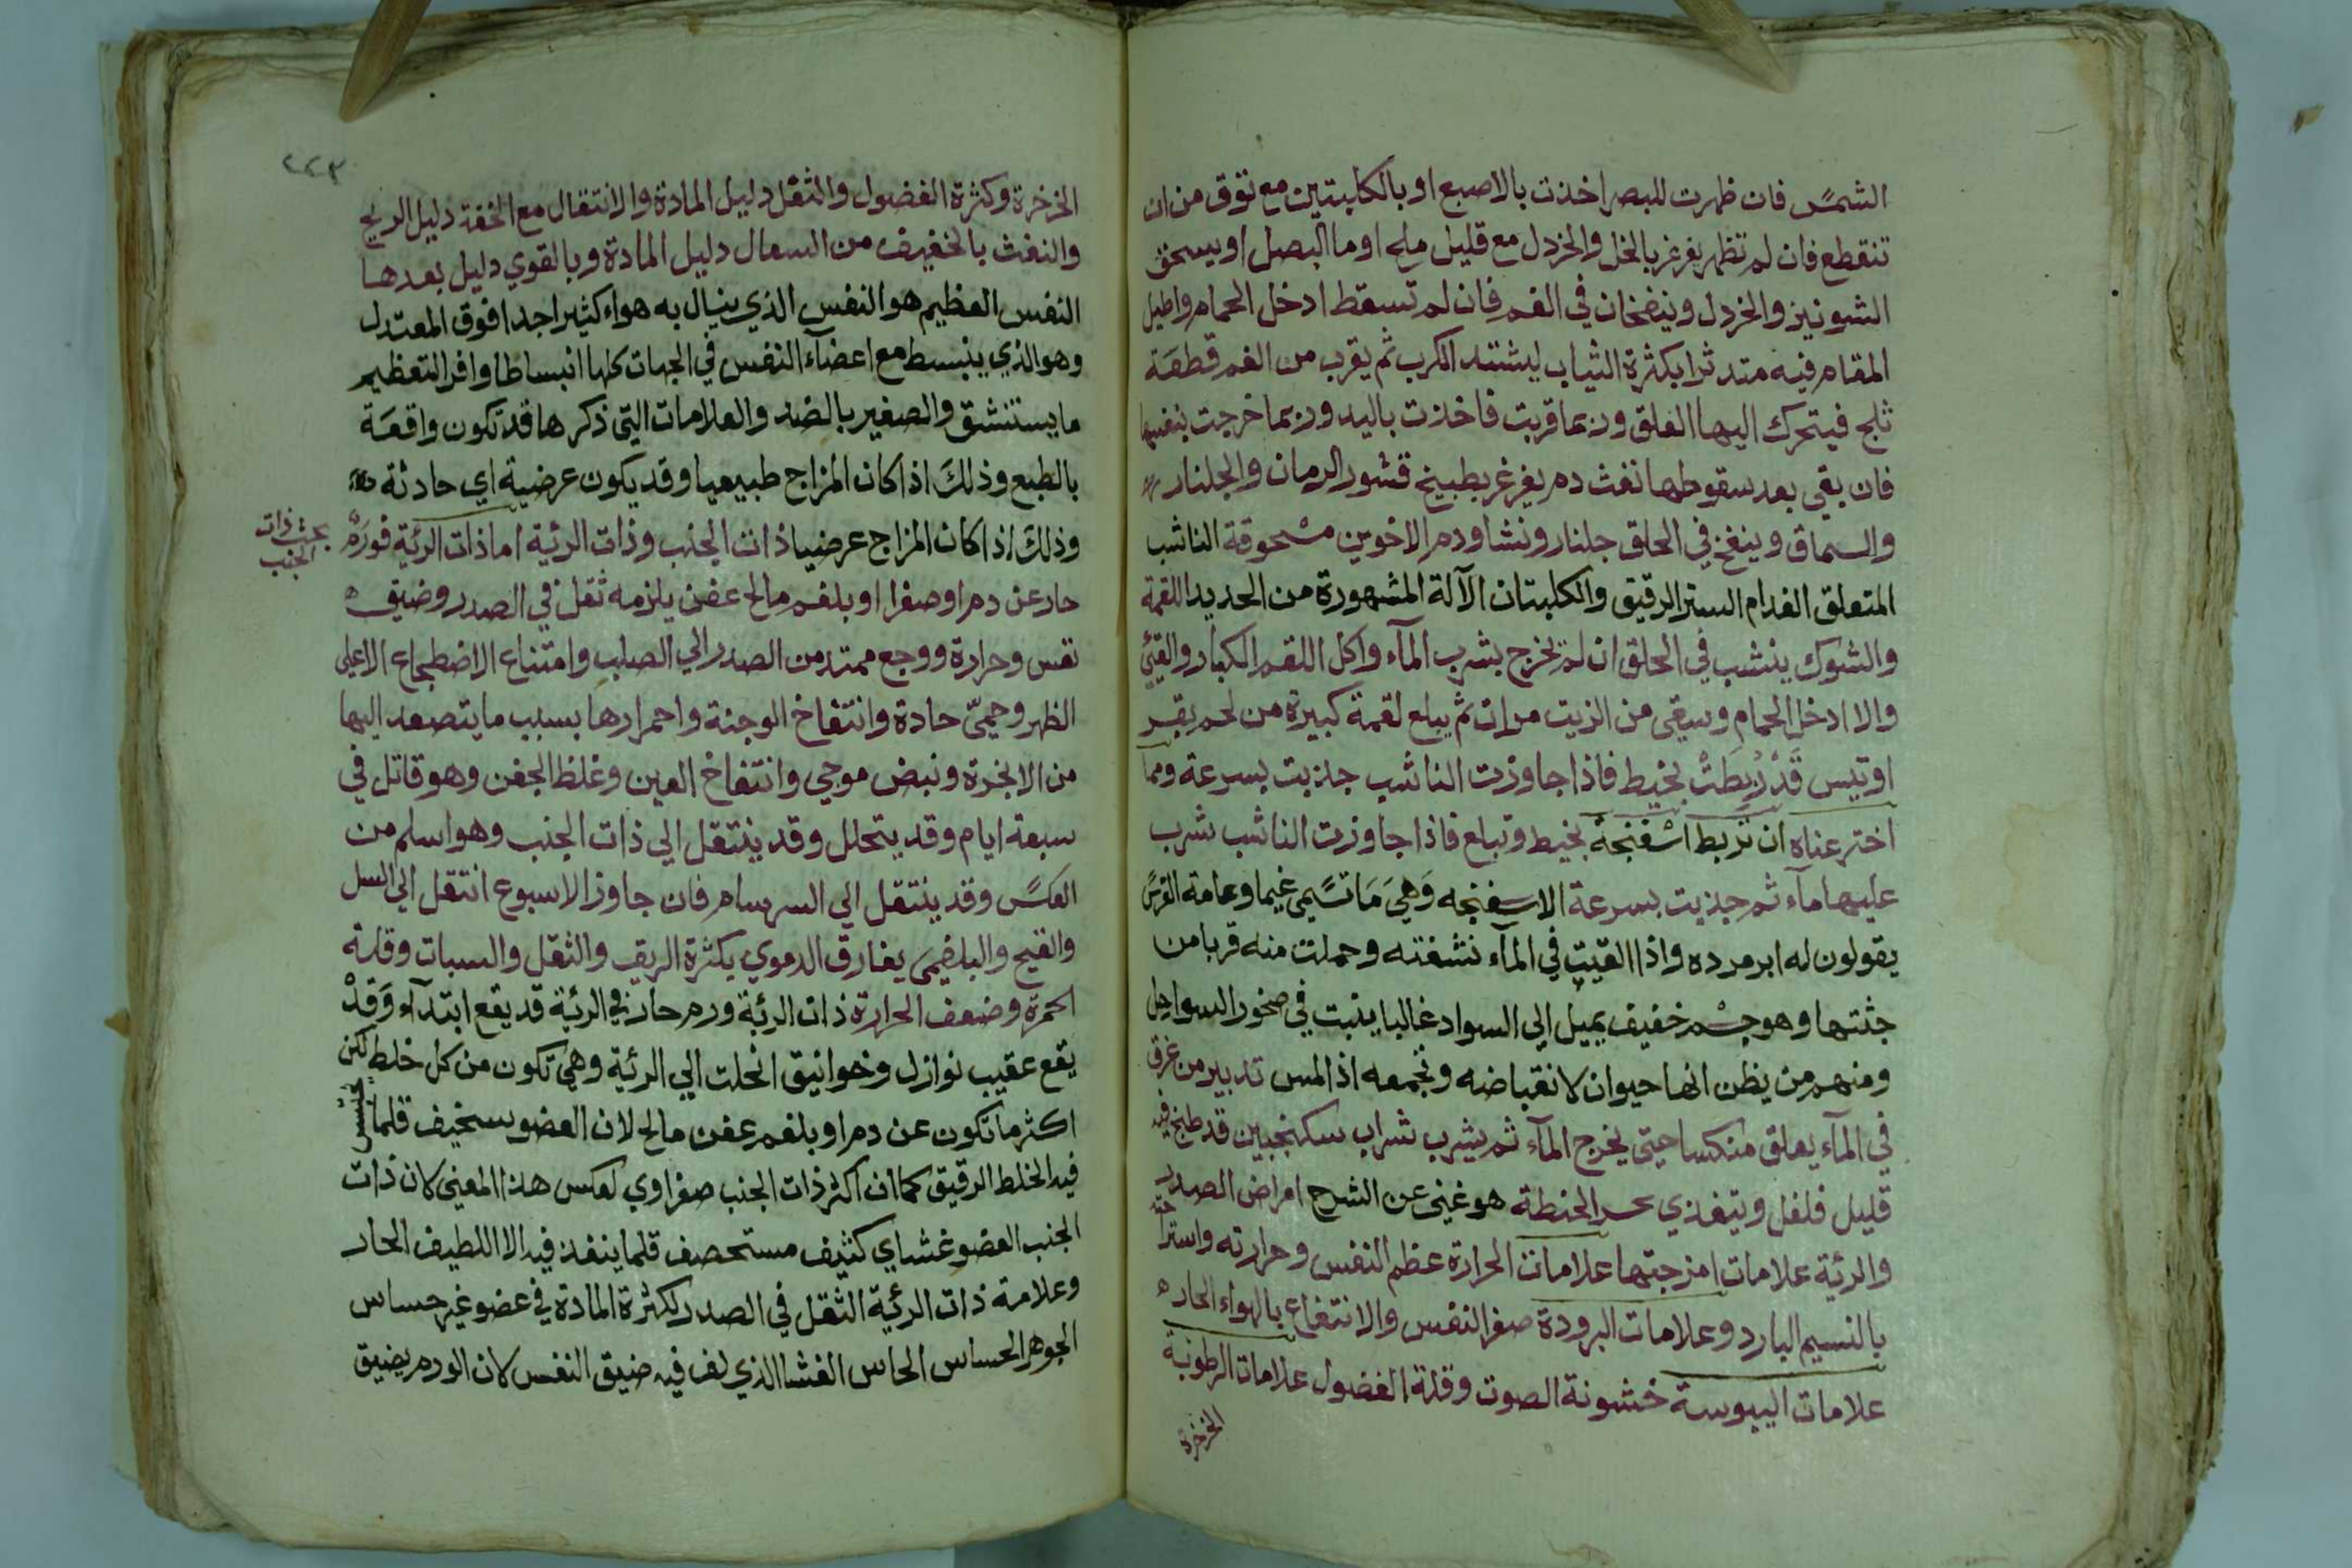 الشمس فان ظهرت للبصر اخذت بالاصبع او بالكلبتين مع توق من ان
تنقطع فان لم تظهر يغرغر بالخل والخردل مع قليل ملح او ما البصل او يسحق
الشونيز والخردل وينفخان في الفم فان لم تسقط ادخل الحمام واطيل
المقام فيه متدثرا بكثرة الثياب ليشتد الكرب ثم يقرب من الفم قطعة
ثلج فيتحرك اليها العلق وربما قربت فاخذت باليد وربما خرجت بنفسها
فان بقي بعد سقوطها نفث دم يغرغر بطبيخ قشور الرمان والجلنار
والسماق وينفخ في الحلق جلنار ونشا ودم الاخوين مسحوقة الناشب
المتعلق الفدام الستر الرقيق والكلبتان الآلة المشهورة من الحديد اللقمة
والشوك ينشب في الحلق ان لم تخرج بشرب المآء واكل اللقم الكبار والقيئ
والا ادخل الحمام وسقي من الزيت مرات ثم يبلع لقمة كبيرة من لحم بقر
او تيس قَدْ رُبِطَتْ بخيط فاذا جاوزت الناشب جذبت بسرعة ومما
اخترعناه ان تربط اسفنجة بخيط وتبلع فاذا جاوزت الناشب شرب
عليها مآء ثم جذبت بسرعة الاسفنجه وَهيَ مَا تسَمي غيما وعامة الفرس
يقولون له ابر مرده واذا القيت في المآء نشفته وحملت منه قربا من
جثتها وهو جسْم خفيف يميل الي السواد غالبا ينبت في صخور السواحل
ومنهم من يظن انها حيوان لانقباضه وتجمعه اذا لمس تدبير من غرق
في المآء يعلق منكسا حتي يخرج المآء ثم يشرب شراب سكنجبين قد طبخ فيه
قليل فلفل ويتغذي بحسو الحنطة هو غني عن الشرح امراض الصدر
والرئة علامات امزجتها علامات الحرارة عظم النفس وحرارته واستراحته
بالنسيم البارد وعلامات البرودة صغر النفس والانتفاع بالهواء الحار
علامات اليبوسة خشونة الصوت وقلة الفضول علامات الرطوبة
الخرخرة
٢٢٣
الخرخرة وكثرة الفضول والثقل دليل المادة والانتقال مع الخفة دليل الريح
والنفث بالخفيف من السعال دليل المادة وبالقوي دليل بعدها
النفس العظيم هو النفس الذي ينال به هواء كثيرا جدا فوق المعتدل
وهو الذي ينبسط مع اعضآء النفس في الجهات كلها انبساطا وافرا لتعظيم
ما يستنشق والصغير بالضد والعلامات التي ذكرها قد تكون واقعة
بالطبع وذلك اذا كان المزاج طبيعيا وقد يكون عرضية اي حادثة
وذلك اذا كان المزاج عرضيا ذات الجنب وذات الرئة اما ذات الرئة فورم
بحث ذات
الجنب
حار عن دم او صفرا او بلغم مالح عفن يلزمه ثقل في الصدر وضيق
نفس وحرارة ووجع ممتد من الصدر الي الصلب وامتناع الاضطجاع الا علي
الظهر وحميّ حادة وانتفاخ الوجنة واحمرارها بسبب ما يتصعد اليها
من الابخرة ونبض موجي وانتفاخ العين وغلظ الجفن وهو قاتل في
سبعة ايام وقد يتحلل وقد ينتقل الي ذات الجنب وهو اسلم من
العكس وقد ينتقل الي السرسام فان جاوز الاسبوع انتقل الي السل
والقيح والبلغمي يفارق الدموي بكثرة الريق والثقل والسبات وقلة
الحمرة وضعف الحرارة ذات الرئة ورم حار في الرئة قد يقع ابتدآء وَقدْ
يقع عقيب نوازل وخوانيق انحلت الي الرئة وهي تكون من كل خلط لكن
اكثر ما تكون عن دم او بلغم عفن مالح لان العضو سخيف قلما يحتبس
فيه الخلط الرقيق كما ان اكثر ذات الجنب صفراوي لعكس هذا المعني لان ذات
الجنب العضو غشاي كثيف مستحصف قلما ينفذ فيه الا اللطيف الحار
وعلامة ذات الرئة الثقل في الصدر لكثرة المادة في عضو غير حساس
الجوهر الحساس الحاس الغشا الذي لف فيه ضيق النفس لان الورم يضيق